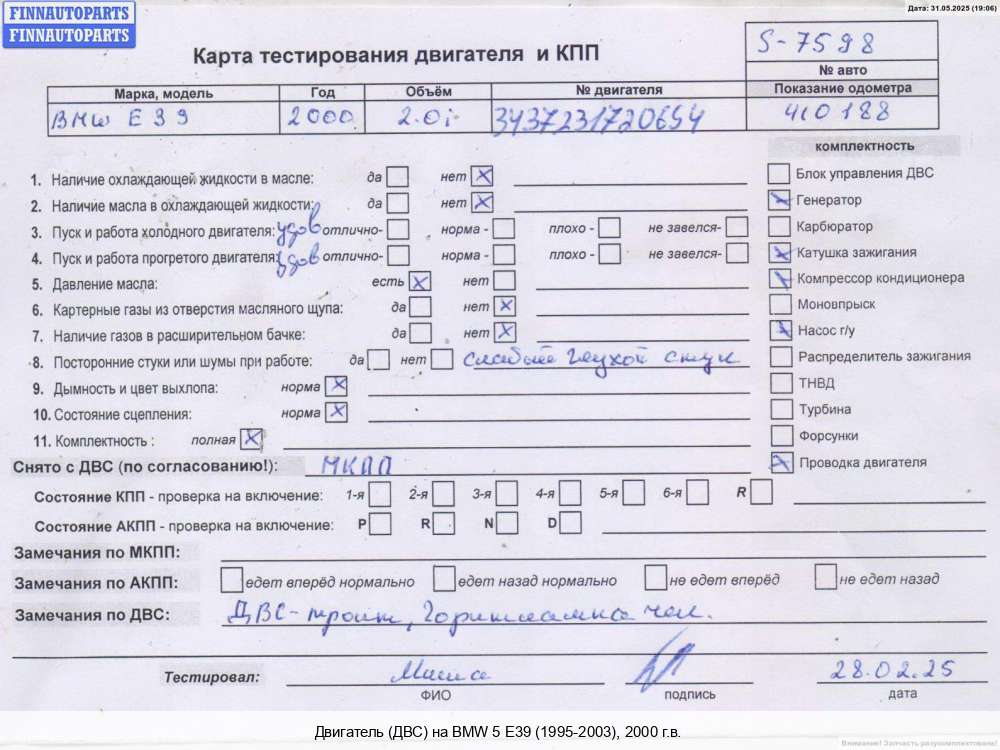 FINNAUTOPARTS
FINNAUTOPARTS
Дата: 31.05.2025 (19:06)
Карта тестирования двигателя и КПП
S-7598
№ авто
Марка, модель Год Объём № двигателя Показание одометра
BMW E39 2000 2.0i 3437231720654 410188
комплектность
1. Наличие охлаждающей жидкости в масле: да нет X
Блок управления ДВС
2. Наличие масла в охлаждающей жидкости: да нет X
Генератор
3. Пуск и работа холодного двигателя: удов отлично- норма - плохо - не завелся-
Карбюратор
4. Пуск и работа прогретого двигателя: удов отлично- норма - плохо - не завелся-
Катушка зажигания
5. Давление масла: есть X нет
Компрессор кондиционера
6. Картерные газы из отверстия масляного щупа: да нет X
Моновпрыск
7. Наличие газов в расширительном бачке: да нет X
Насос г/у
8. Посторонние стуки или шумы при работе: да нет слабый глухой стук
Распределитель зажигания
9. Дымность и цвет выхлопа: норма X
ТНВД
10. Состояние сцепления: норма X
Турбина
11. Комплектность : полная X
Форсунки
Снято с ДВС (по согласованию!): МКПП
Проводка двигателя
Состояние КПП - проверка на включение: 1-я 2-я 3-я 4-я 5-я 6-я R
Состояние АКПП - проверка на включение: P R N D
Замечания по МКПП:
Замечания по АКПП: едет вперёд нормально едет назад нормально не едет вперёд не едет назад
Замечания по ДВС: ДВС-троит, Горит лампа чек.
Тестировал: Миша 28.02.25
ФИО подпись дата
Двигатель (ДВС) на BMW 5 E39 (1995-2003), 2000 г.в.
Внимание! Запчасть разукомплектована!